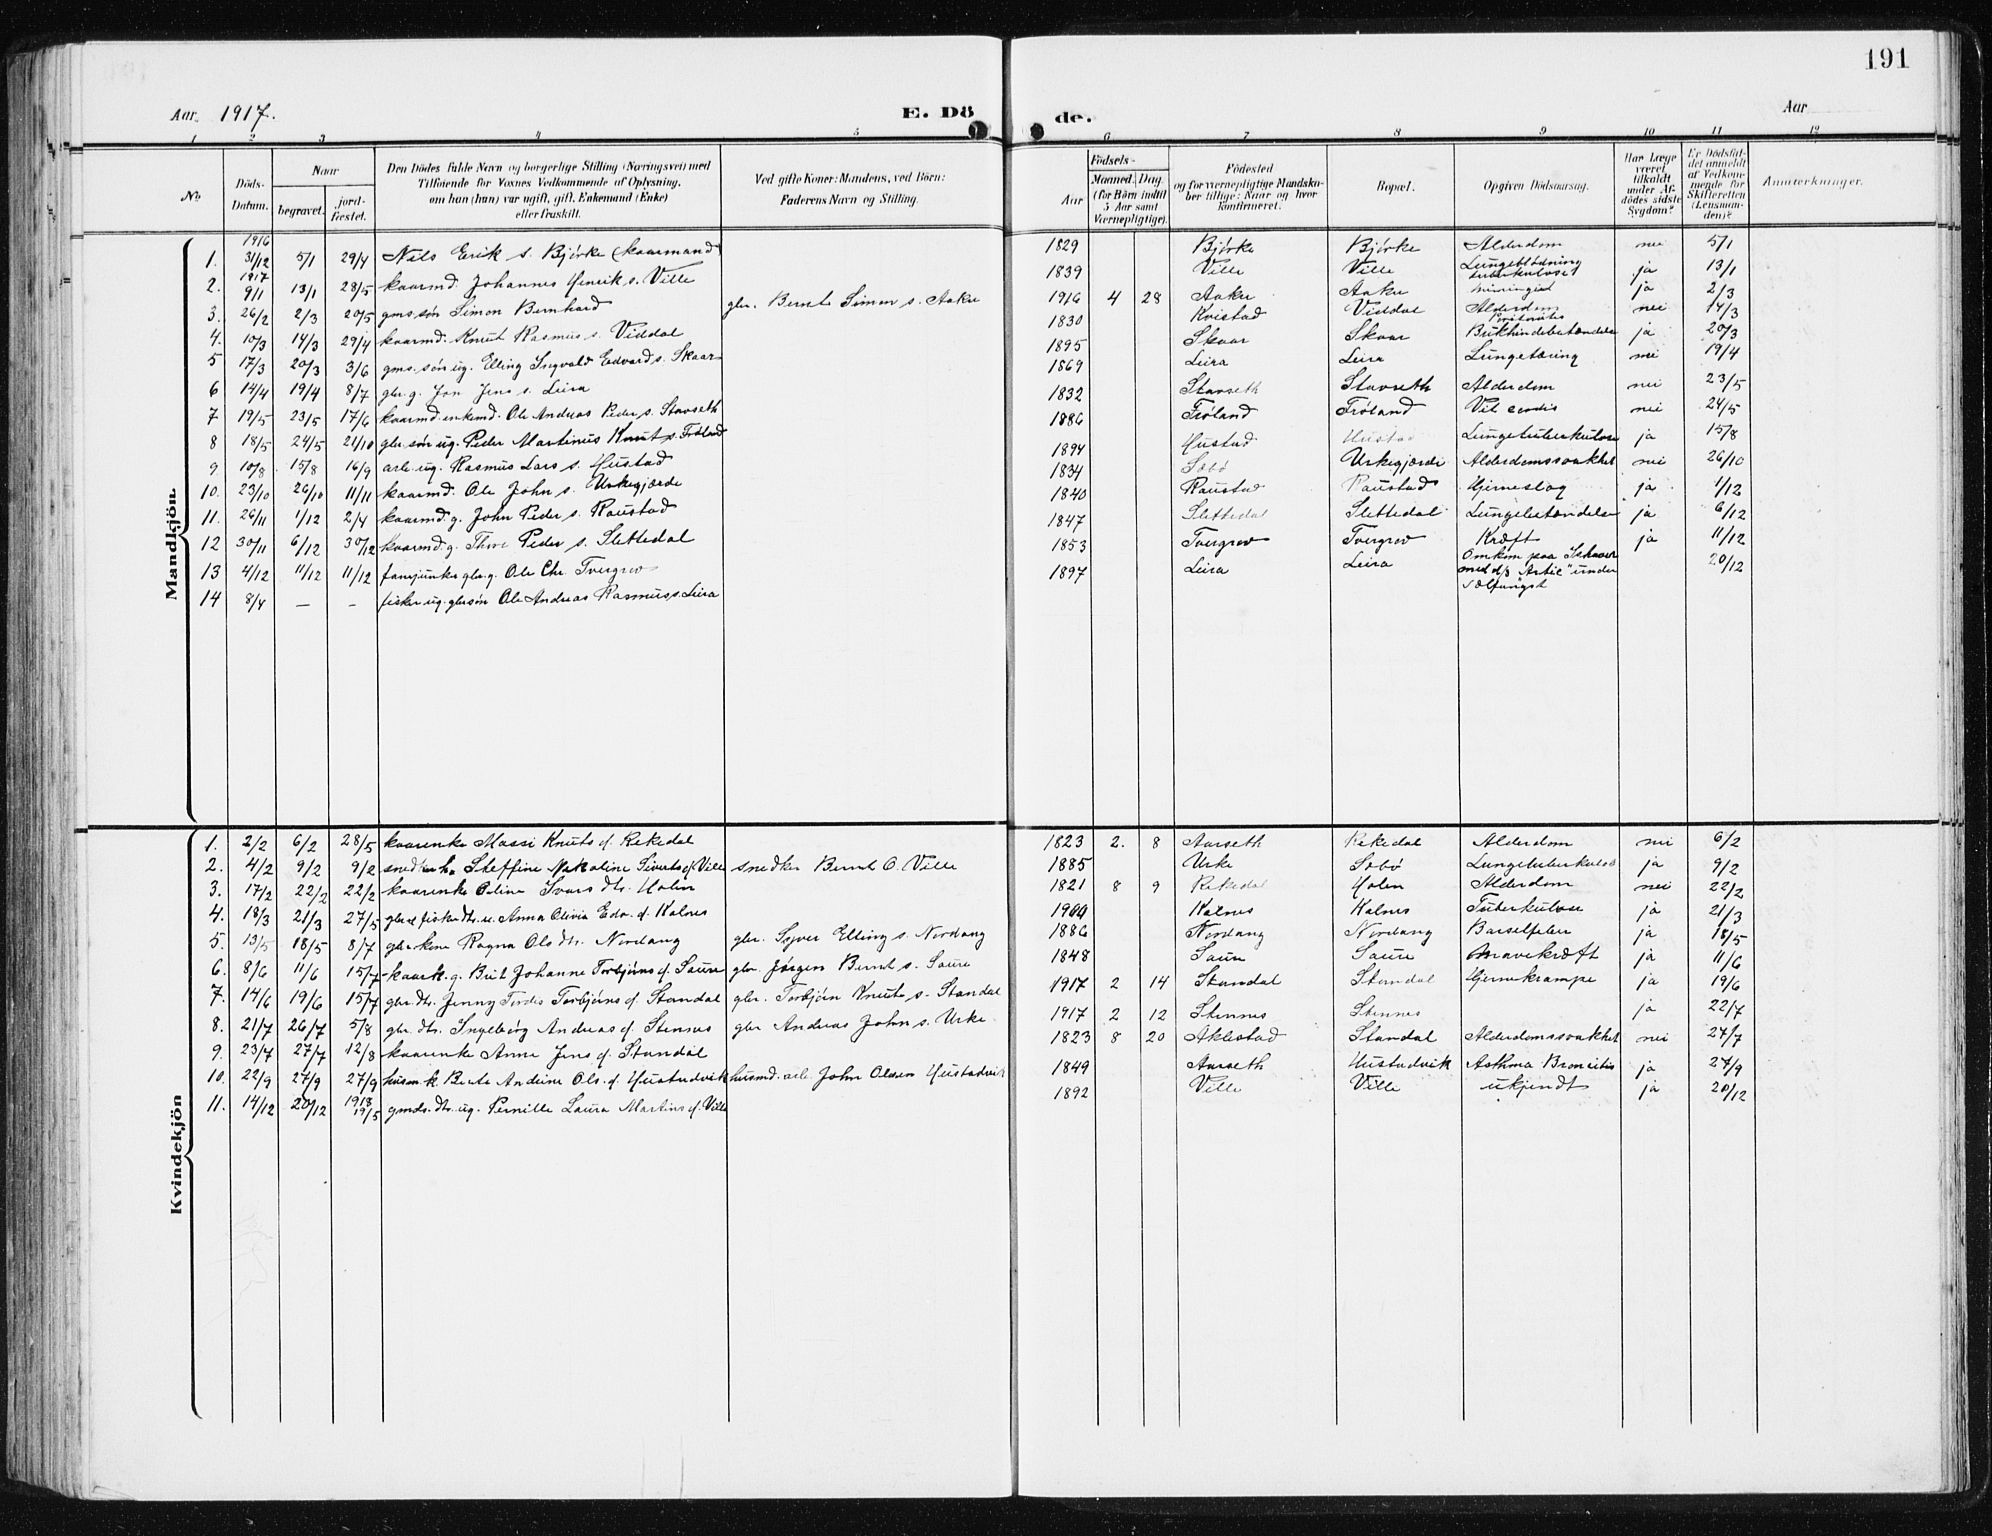 191
Aar 1917.
E. Dö de.
Aar
1 2 3 4 5 6 7 8 9 10 11 12
No.
Döds-Datum.
Naar
begravet.
jord-fæstet.
Den Dödes fulde Navn og borgerlige Stilling (Næringsvei) med
Tilföiende for Voxnes Vedkommende af Oplysning,
om han (hun) var ugift, gift, Enkemand (Enke)
eller fraskilt.
Ved gifte Koner: Mandens, ved Börn:
Faderens Navn og Stilling.
Födsels-
Aar
Maaned. Dag
(for Börn indtil
5 Aar samt
Værnepligtige).
Födested
og for værnepligtige Mandska-
ber tillige: Naar og hvor
konfirmeret.
Bopæl.
Opgiven Dödsaarsag.
Har Læge
været
tilkaldt
under Af-
dödes sidste
Sygdom?
Er Dödsfal-
det anmeldt
af Vedkom-
mende for
Skifteretten
(Lensman-
den)?
Anmærkninger.
Mandkjön.
1. 1916 31/12 5/1 29/4 Nils Erik s. Bjørke (kaarmand) 1829 Bjørke Bjørke Alderdom nei 5/1
2. 1917 9/1 13/1 28/5 kaarmd. Johannes Henrik s. Ville 1839 Ville Ville Lungeblødning tuberkulose ja 13/1
3. 26/2 2/3 20/5 gms søn Simon Bernhard gbr. Bernt Simon s. Aaku 1916 4 28 Aaku Aaku ja 2/3
4. 10/3 14/3 29/4 kaarmd. Knut Rasmus s. Viddal 1830 Kvistad Viddal Alderdom nei 14/3
5 17/3 20/3 3/6 gms. søn ug. Elling Ingvald Edvard s. Skaar 1895 Skaar Skaar Bukhindebetændelse ja 20/3
6 14/4 19/4 8/7 gbr g. Jon Jens s. Leira 1869 Leira Leira Lungetæring nei 19/4
7 19/5 23/5 17/6 kaarmd. enkmd. Ole Andreas Peder s. Stavseth 1832 Stavseth Stavseth Alderdom nei 23/5
8 18/5 24/5 21/10 gbr søn ug. Peder Martinus Knut s. Frøland 1886 Frøland Frøland nei 24/5
9 10/8 15/8 16/9 arb. ug. Rasmus Lars s. Hustad 1894 Hustad Hustad Lungetuberkulose ja 15/8
10. 23/10 26/10 11/11 kaarmd. Ole John s. Urkegjærde 1834 Sæbø Urkegjærde Alderdomssvakhet nei 26/10
11. 26/11 1/12 2/4 kaarmd. g. John Peder s. Raustad 1840 Raustad Raustad Hjerneslag ja 1/12
12 30/11 6/12 30/12 kaarmd. g. Thore Peder s. Slettedal 1847 Slettedal Slettedal Lungebetændelse ja 6/12
13 4/12 11/12 11/12 fanejunker gbr. g. Ole Chr. Tvergrov 1853 Tvergrov Tvergrov Kræft ja 11/12
14 8/4 — — fisker ug. gbr søn Ole Andreas Rasmus s. Leira 1897 Leira Leira Omkom paa Ishavet med d/s "Artic" under Sælfangst 20/12
Kvindekjön
1. 2/2 6/2 28/5 kaarenke Massi Knuts d. Rekedal 1823 2. 8 Aarseth Rekedal Alderdom nei 6/2
2. 4/2 9/2 9/2 Steffine Nakoline Siverts d. Ville snedker Bernt O. Ville 1885 Urke Sæbø Lungetuberkulose ja 9/2
3. 17/2 22/2 22/2 kaarenke Oline Ivars dtr. Holen 1821 8 9 Rekedal Holen Alderdom nei 22/2
4. 18/3 21/3 27/5 gbr. fisker dtr. u. Anna Olivia Edv. d. Kalnes 1900 Kalnes Kalnes Tuberkulose ja 21/3
5. 13/5 18/5 8/7 gbr. kone Ragna Ols dtr. Nordang gbr. Syver Elling s. Nordang 1886 Nordang Nordang Barselfeber ja 18/5
6. 8/6 11/6 15/7 kaark. g. Brit Johanne Torbjørns d. Saure gbr. Jørgen Bernt s. Saure 1848 Saure Saure Mavekræft ja 11/6
7. 14/6 19/6 15/7 gbr. dtr. Jenny Frodis Torbjørns d. Standal gbr. Torbjørn Knut s. Standal 1917 2 14 Standal Standal Hjernekrampe ja 19/6
8. 21/7 26/7 5/8 gbr. dtr. Ingeborg Andreas d. Stennes gbr Andreas John s. Urke 1917 2 12 Stennes Stennes ja 22/7
9. 23/7 27/7 12/8 kaarenke Anne Jens d. Standal 1823 8 20 Aklestad Standal Alderdomssvakhet nei 27/7
10. 22/9 27/9 27/9 husm. k. Berte Andrine Ols. d. Hustadvik husmd. arb. John Olsen Hustadvik 1849 Aarseth Hustadvik Asthma Broncitis ja 27/9
11. 14/12 20/12 1918 19/5 gmds. dtr. ug. Pernille Laura Martins d. Ville 1892 Ville Ville ukjendt ja 20/12